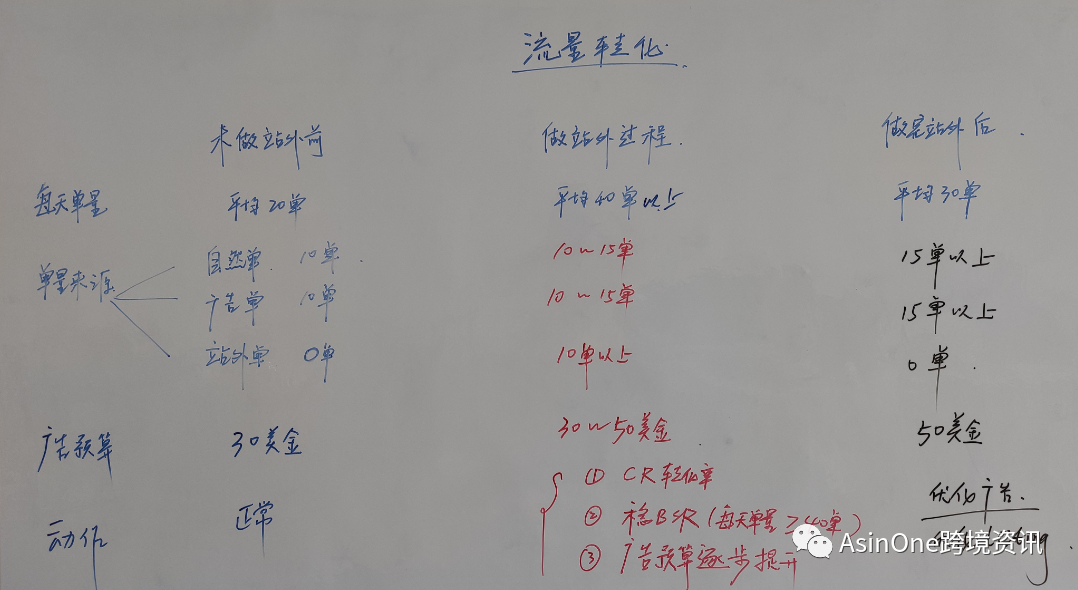 流量转化.
未做站外前 做站外过程. 做完站外后.
每天单量 平均20单 平均40单以上 平均30单
单量来源 自然单. 10单. 10~15单 15单以上
广告单 10单 10~15单 15单以上
站外单 0单 10单以上 0单.
广告预算 30美金 30~50美金. 50美金
① CR转化率
优化广告.
动作 正常 ② 稳BSR(每天单量≥40单)
③ 广告预算逐步提升
AsinOne跨境资讯